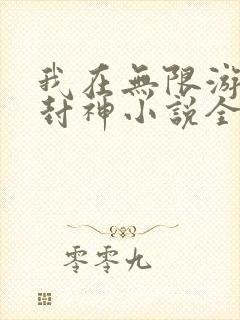 我在無限游
封神小説全
零零九